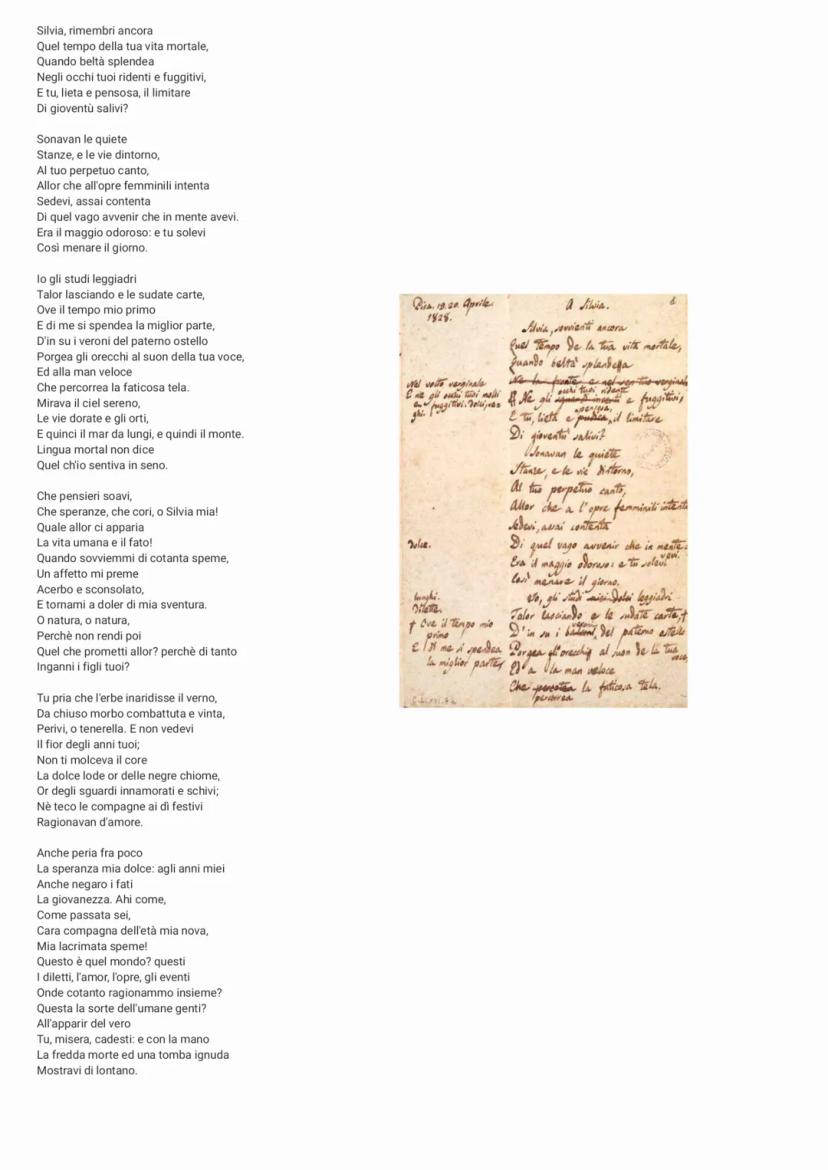 Silvia, rimembri ancora
Quel tempo della tua vita mortale,
Quando beltà splendea
Negli occhi tuoi ridenti e fuggitivi,
E tu, lieta e pensosa, il limitare
Di gioventù salivi?
Sonavan le quiete
Stanze, e le vie dintorno,
Al tuo perpetuo canto,
Allor che all'opre femminili intenta
Sedevi, assai contenta
Di quel vago avvenir che in mente avevi.
Era il maggio odoroso: e tu solevi
Così menare il giorno.
Io gli studi leggiadri
Talor lasciando e le sudate carte,
Ove il tempo mio primo
E di me si spendea la miglior parte,
D'in su i veroni del paterno ostello
Porgea gli orecchi al suon della tua voce,
Ed alla man veloce
Che percorrea la faticosa tela.
Mirava il ciel sereno,
Le vie dorate e gli orti,
E quinci il mar da lungi, e quindi il monte.
Lingua mortal non dice
Quel ch'io sentiva in seno.
Che pensieri soavi,
Che speranze, che cori, o Silvia mia!
Quale allor ci apparia
La vita umana e il fato!
Quando sovviemmi di cotanta speme,
Un affetto mi preme
Acerbo e sconsolato,
E tornami a doler di mia sventura.
O natura, o natura,
Perchè non rendi poi
Quel che prometti allor? perchè di tanto
Inganni i figli tuoi?
Tu pria che l'erbe inaridisse il verno,
Da chiuso morbo combattuta e vinta,
Perivi, o tenerella. E non vedevi
Il fior degli anni tuoi;
Non ti molceva il core
La dolce lode or delle negre chiome,
Or degli sguardi innamorati e schivi;
Nè teco le compagne ai dì festivi
Ragionavan d'amore.
Anche peria fra poco
La speranza mia dolce: agli anni miei
Anche negaro i fati
La giovanezza. Ahi come,
Come passata sei,
Cara compagna dell'età mia nova,
Mia lacrimata speme!
Questo è quel mondo? questi
I diletti, l'amor, l'opre, gli eventi
Onde cotanto ragionammo insieme?
Questa la sorte dell'umane genti?
All'apparir del vero
Tu, misera, cadesti: e con la mano
La fredda morte ed una tomba ignuda
Mostravi di lontano.
Pisa. 19. 20. Aprile.
1828.
A Silvia.
Silvia, sovvienti ancora
Quel tempo de la tua vita mortale,
Quando beltà splendea
Ne la fronte e nel sen tuo verginale
Nel volto verginale
E ne gli occhi tuoi molli
e fuggitivi. dolci, va-
ghi.
occhi tuoi ridenti
Ne gli e fuggitivi,
pensosa,
E tu, lieta e pudica, il limitare
Di gioventù salivi?
Sonavan le quiete
Stanze, e le vie dintorno,
Al tuo perpetuo canto,
Allor che a l'opre femminili intenta
Sedevi, assai contenta
dolce.
Di quel vago avvenir che in mente
avevi.
Era il maggio odoroso: e tu solevi
Così menare il giorno.
lunghi.
Dilette.
Io, gli studi miei dolci leggiadri
Talor lasciando e le sudate carte, †
† Ove il tempo mio
primo
E di me si spendea
la miglior parte,
veroni
D'in su i del paterno ostello
Porgea gli orecchi al suon de la tua
voce,
Ed a la man veloce
Che percotea la faticosa tela.
percorrea